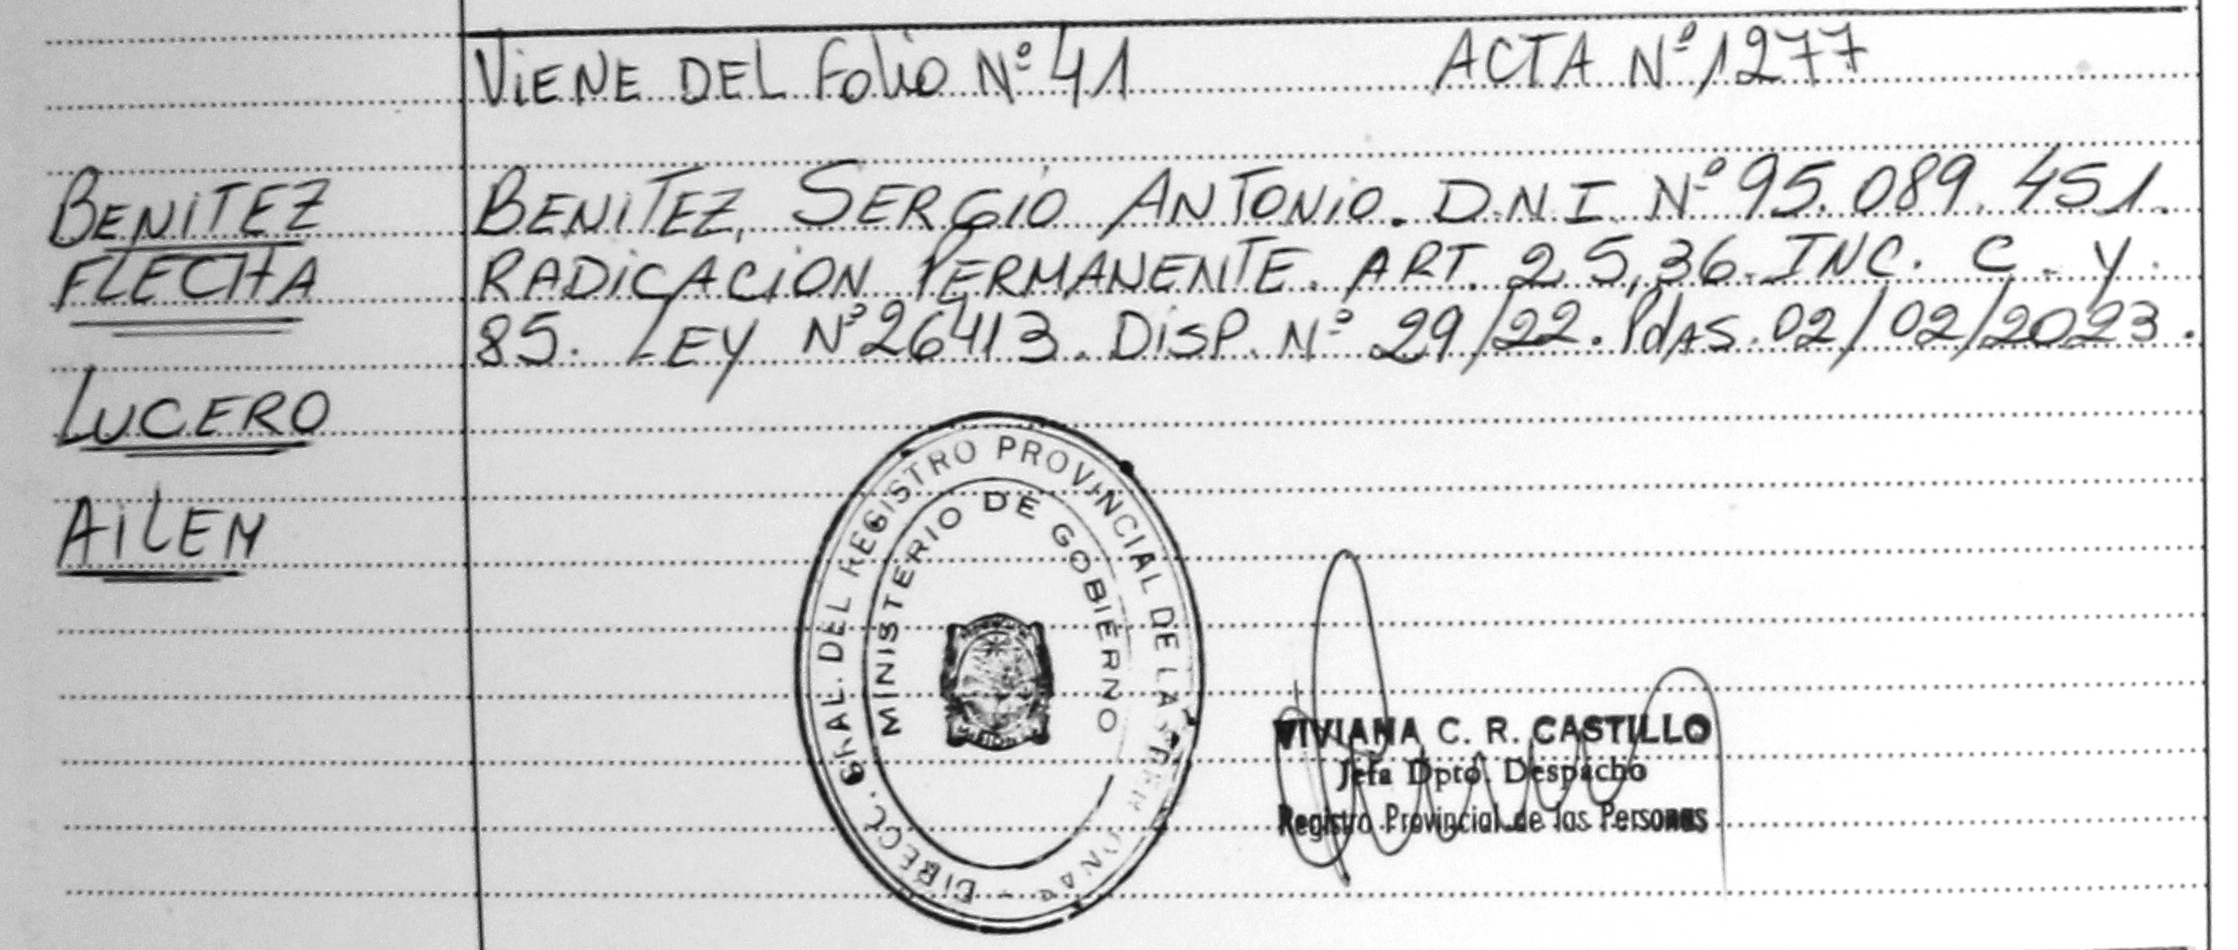 VIENE DEL Folio Nº 41 ACTA Nº 1277
BENITEZ
FLECHA
LUCERO
AILEN
BENITEZ, SERGIO ANTONIO. D.N.I. Nº 95.089.451.
RADICACION PERMANENTE. ART. 25,36. INC. C. Y
85. LEY Nº 26413. DISP. Nº 29/22. PdAS. 02/02/2023.
DIRECC. GRAL. DEL REGISTRO PROVINCIAL DE LAS PERSONAS
MINISTERIO DE GOBIERNO
VIVIANA C. R. CASTILLO
Jefa Dpto. Despacho
Registro Provincial de las Personas